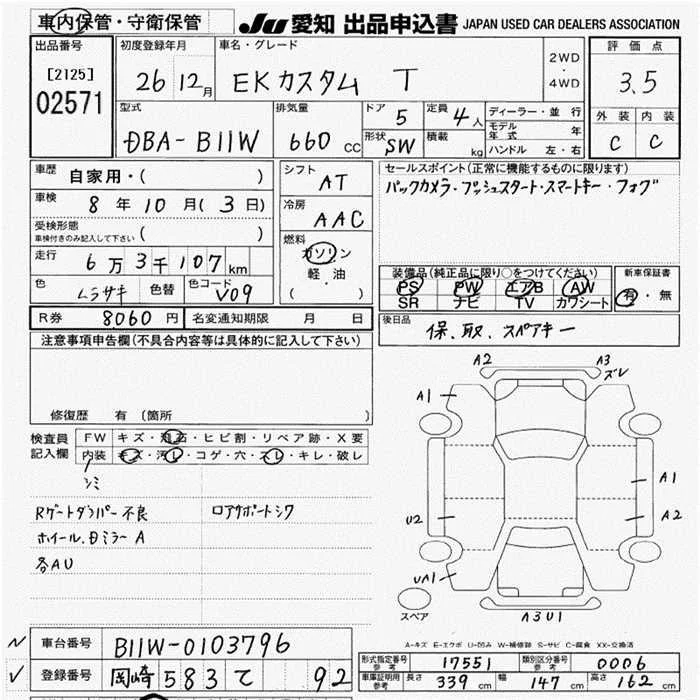 車内保管・守衛保管
JU 愛知 出品申込書 JAPAN USED CAR DEALERS ASSOCIATION
出品番号
[2125]
02571
初度登録年月
26 12月
車名・グレード
EKカスタム T
2WD
・
4WD
評価点
3.5
外装 内装
C C
型式
DBA-B11W
排気量
660 CC
ドア 5
形状 SW
定員 4人
積載 kg
ディーラー・並行
モデル年式 年
ハンドル 左・右
車歴 自家用・( )
車検 8年 10月(3日)
受検形態
車検付きのみ記入して下さい ( )
走行 6万3千107km
色 ムラサキ 色替 色コード V09
シフト AT
冷房 AAC
燃料
ガソリン
軽・油
( )
セールスポイント(正常に機能するものに限ります)
バックカメラ・プッシュスタート・スマートキー・フォグ
装備品(純正品に限り○をつけてください)
PS PW エアB AW
SR ナビ TV カワシート
新車保証書
有・無
R券 8060円 名変通知期限 月 日
後日品
保、取、スペアキー
注意事項申告欄(不具合内容等は具体的に記入して下さい)
修復歴 有 (箇所 )
検査員記入欄
FW キズ・飛石・ヒビ割・リペア跡・X要
内装 キズ・汚レ・コゲ・穴・スレ・キレ・破レ
シミ
Rゲートダンパー不良 ロアサポートシワ
ホイール、
各AU
A2
A3
ズレ
A1
A1
A2
U2
UA1
A3U1
スペア
A-キズ E-エクボ U-凹み W-補修跡 S-サビ C-腐食 XX-交換済
車台番号 B11W-0103796
登録番号 岡崎 583 て 92
形式指定番号
参考 17551
類別区分番号
参考 0006
車庫証明用
参考 長さ 339cm 幅 147cm 高さ 162cm